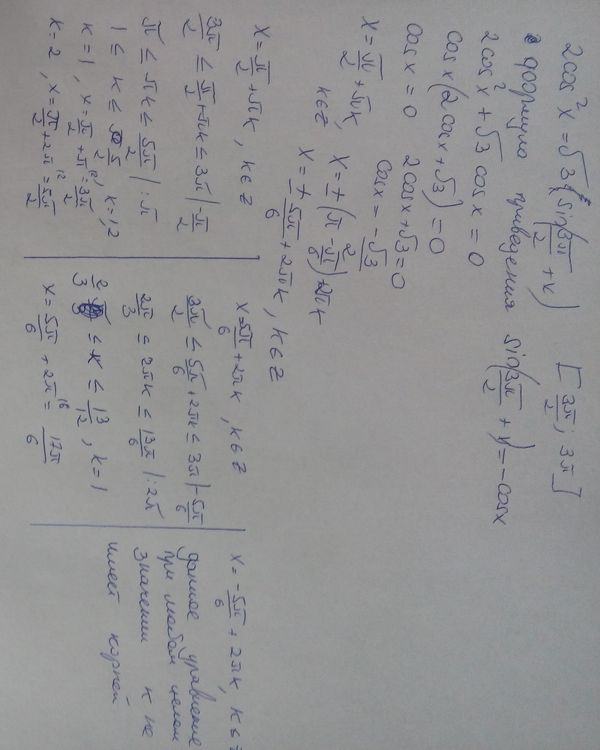 2cos²x = √3 (sin(3π/2 + x) [3π/2; 3π]
формула приведения sin(3π/2 + x) = -cosx
2cos²x + √3 cosx = 0
cosx(2cosx+√3) = 0
cosx = 0 2cosx+√3=0
x = π/2 + πk, k∈Z cosx = -√3/2
x = ±(π - π/6) + 2πk
x = ± 5π/6 + 2πk, k∈Z
x = π/2 + πk, k∈Z
3π/2 ≤ π/2 + πk ≤ 3π |-π/2
π ≤ πk ≤ 5π/2 |:π
1 ≤ k ≤ 5/2, k=1,2
k=1, x = π/2 + π = 3π/2
k=2, x = π/2 + 2π = 5π/2
x = 5π/6 + 2πk, k∈Z
3π/2 ≤ 5π/6 + 2πk ≤ 3π |-5π/6
2π/3 ≤ 2πk ≤ 13π/6 |:2π
2/3 ≤ k ≤ 13/12, k=1
x = 5π/6 + 2π = 17π/6
x = -5π/6 + 2πk, k∈Z
данное уравнение
при любом целом
значении k не
имеет корней